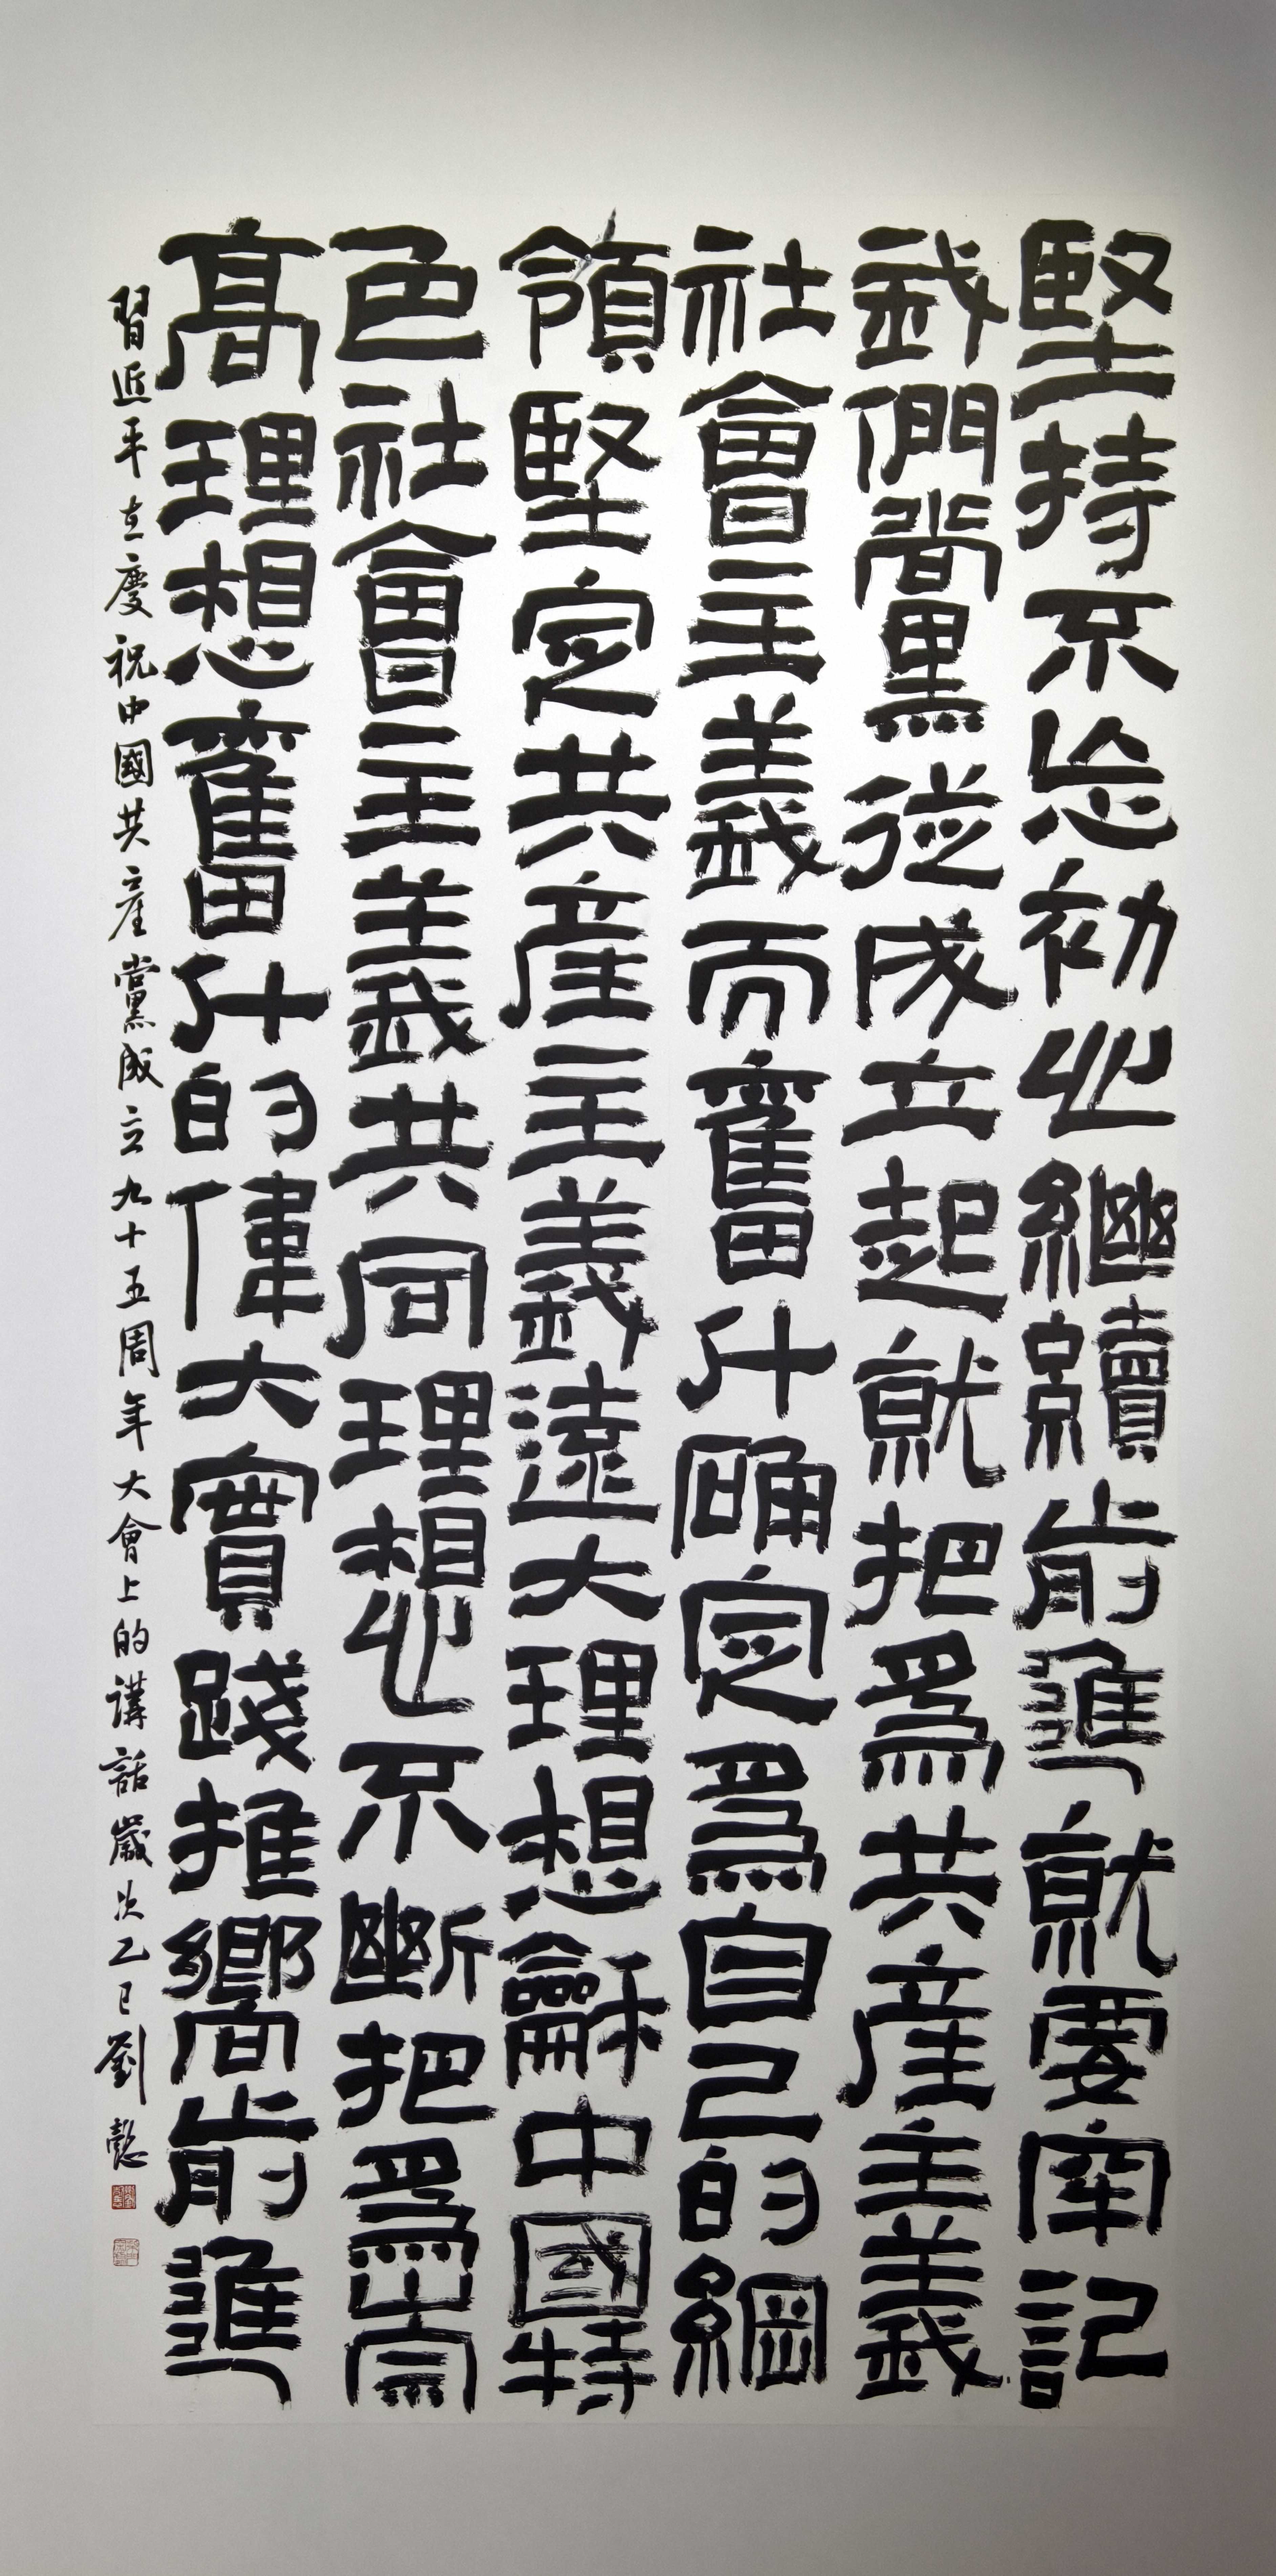 堅持不忘初心繼續前進就要牢記
我們黨從成立起就把爲共產主義
社會主義而奮斗確定爲自己的綱
領堅定共產主義遠大理想龢中國特
色社會主義共同理想心不斷把爲崇
高理想奮斗的偉大實踐推嚮前進
習近平在慶祝中國共產黨成立九十五周年大會上的講話歲次乙巳劉懿